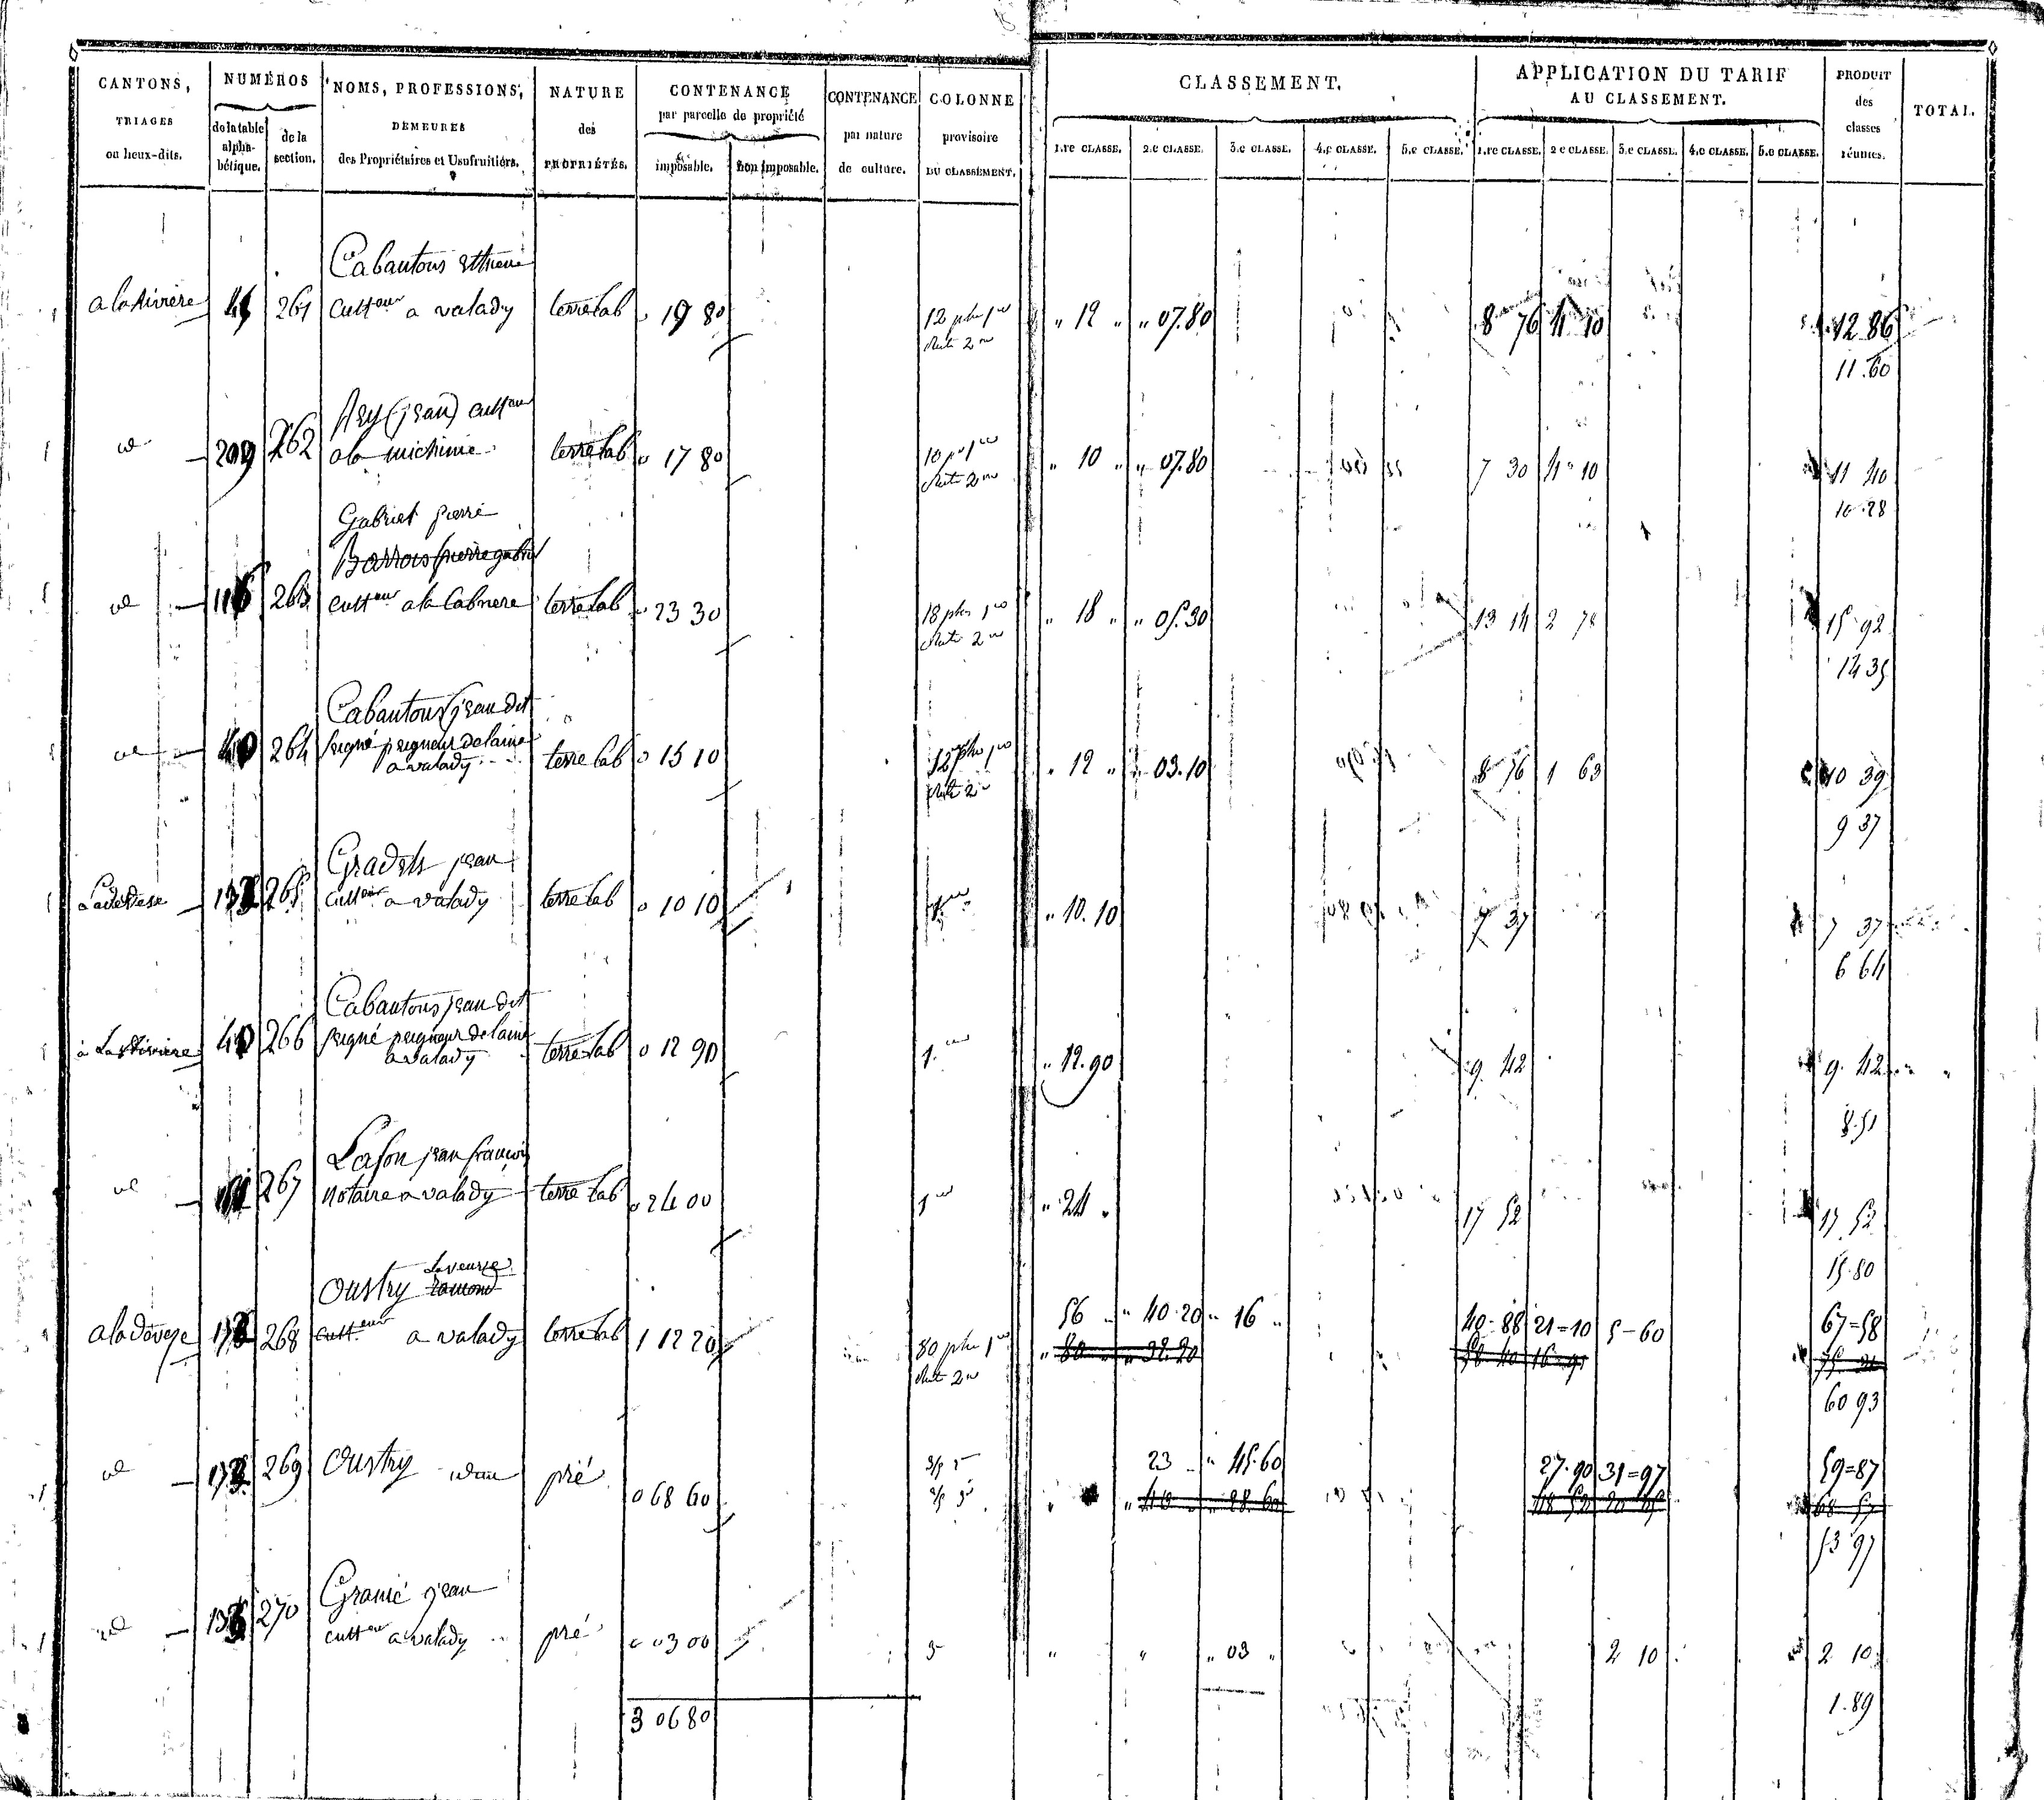 CANTONS,
TRIAGES
ou lieux-dits.
NUMÉROS
de la table alpha-bétique.
de la section.
NOMS, PROFESSIONS,
DEMEURES
des Propriétaires et Usufruitiers.
NATURE
des
PROPRIÉTÉS.
CONTENANCE
par parcelle de propriété
imposable.
non imposable.
CONTENANCE
par nature
de culture.
COLONNE
provisoire
DU CLASSEMENT.
CLASSEMENT.
1.re CLASSE. 2.e CLASSE. 3.e CLASSE. 4.e CLASSE. 5.e CLASSE.
APPLICATION DU TARIF
AU CLASSEMENT.
1.re CLASSE. 2.e CLASSE. 3.e CLASSE. 4.e CLASSE. 5.e CLASSE.
PRODUIT
des
classes
réunies.
TOTAL.
Cabantous
a la Rivière 261 Culteur a valady terre lab 19 80 12 plus 1re " 12 " " 07.80 8 76 4 10 12 86
2me
11.60
(jean) Culteur
id 209 262 a la terre lab 0 17 80 10 1re " 10 " " 07.80 7 30 4 10 11 40
2me
10.28
Gabriel pierre
Barrois pierre gabriel
id 116 263 Culteur a la terre lab 0 23 30 18 plus 1re " 18 " " 05.30 13 14 2 78 15 92
2me
14 35
Cabantous jean dit
id 40 264 peigné peigneur de laine terre lab 0 15 10 12 plus 1re " 12 " " 03.10 8 76 1 63 10 39
a valady
2me
9 37
jean
265 Culteur a valady terre lab 0 10 10 1re " 10.10 7 37 7 37
6 64
Cabantous jean dit
à La Rivière 40 266 peigné peigneur de laine terre lab 0 12 90 1re " 12.90 9 42 9. 42
a valady
8.51
Lafon jean françois
id 267 Notaire a valady terre lab 0 24 00 1re " 24 " 17 52 17 52
15.80
La veuve
Oustry ramond
268 Culteur a valady terre lab 1 12 20 80 plus 1re 56 " " 40.20 " 16 " 40-88 21=10 5-60 67=58
" 80 " " 32.20 58 40
2me
60 93
id 269 Oustry idem pré 0 68 60 3/5 2 23 " " 45.60 27.90 31=97 59=87
2/5 3 " 40 " " 28.60
53 97
Granié jean
id 270 culteur a valady pré 0 03 00 3 " " " 03 " 2 10 2 10
1.89
3 06 80